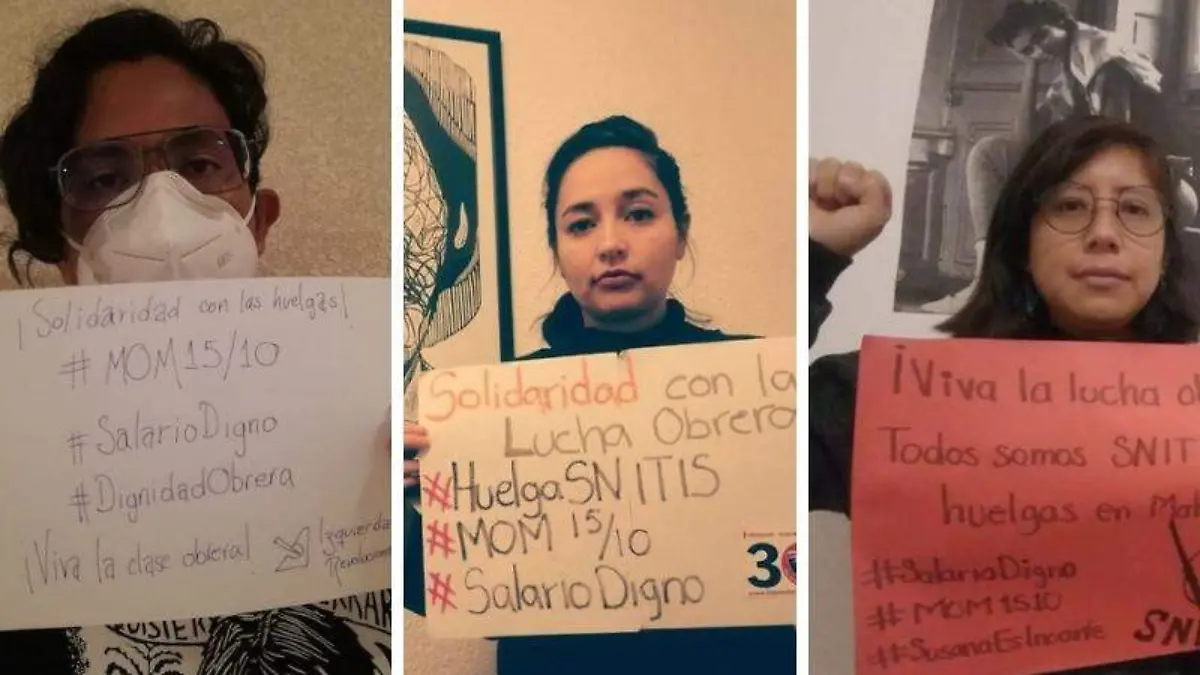 ¡Solidaridad con las huelgas!
#MOM15/10
#SalarioDigno
#DignidadObrera
¡Viva la clase obrera!
Izquierda
Revoluciona
QUISIER
Solidaridad con la
Lucha Obrera
#HuelgaSNITIS
#MOM 15/10
#SalarioDigno
30
¡Viva la lucha ob
Todos somos SNIT
huelgas en Mat
#SalarioDigno
#MOM 1510
#SusanaEsInocente
SNI